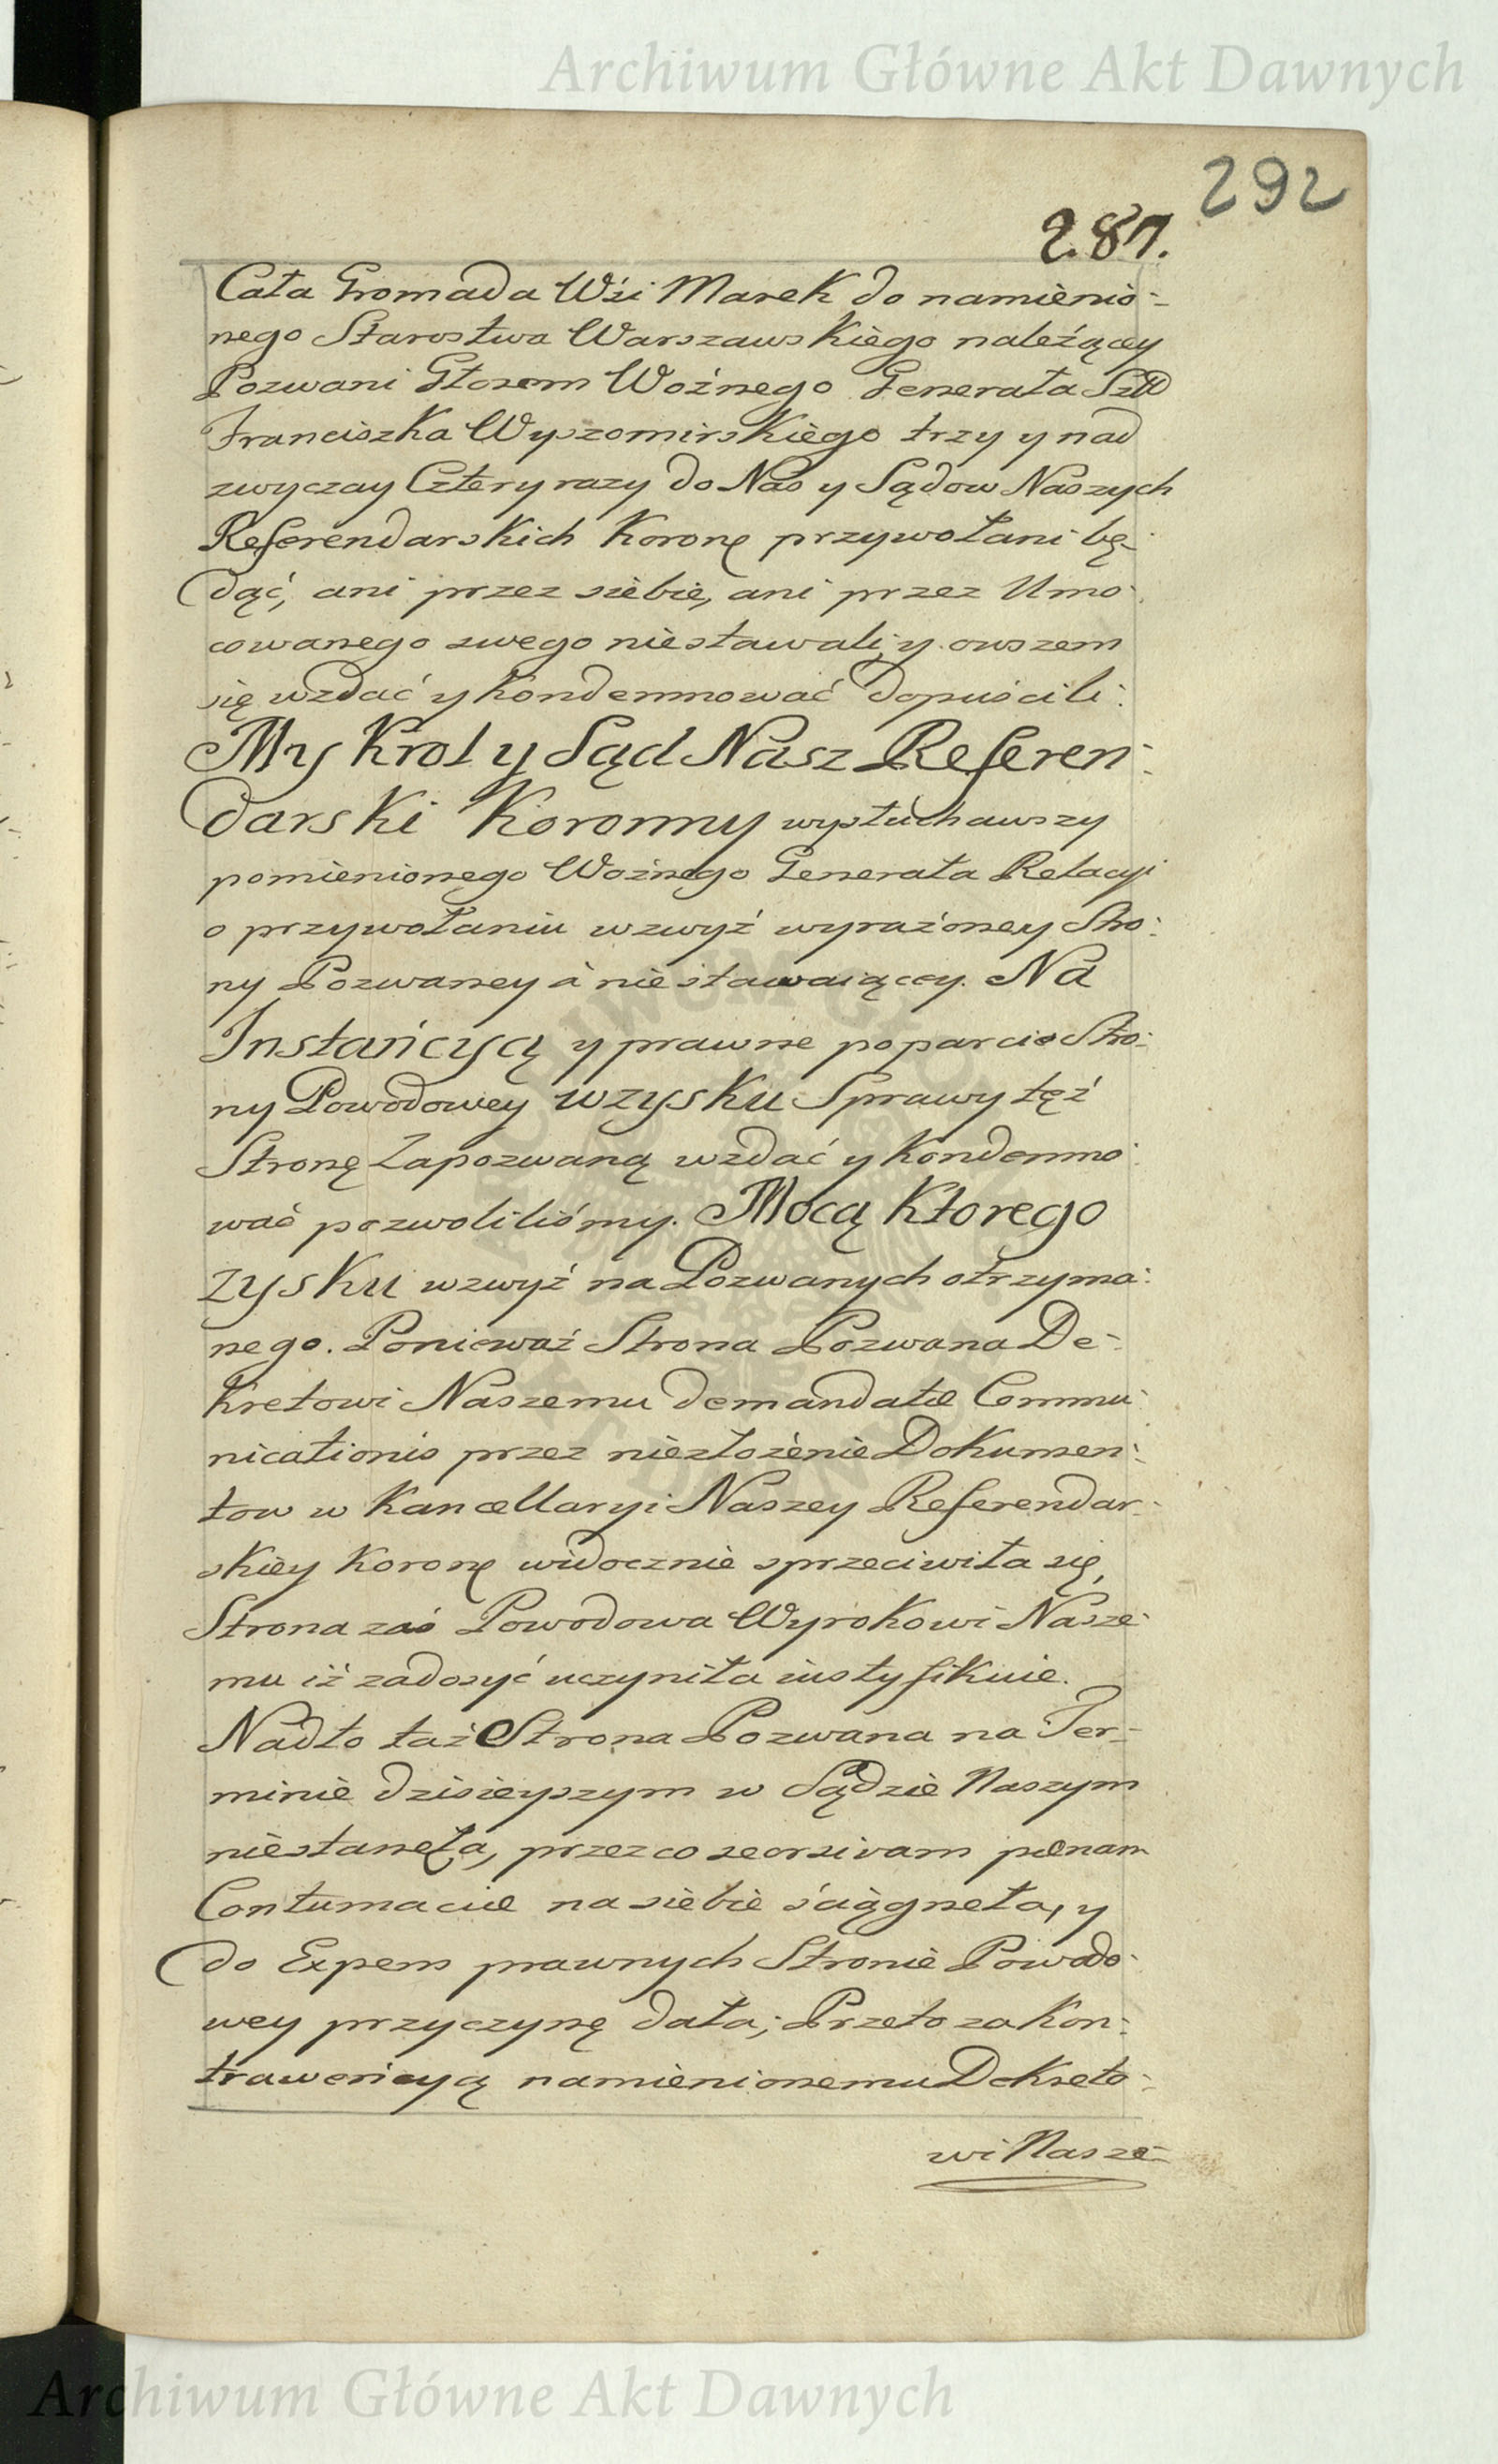 Archiwum Główne Akt Dawnych
292
287.
Cała Gromada Wśi Marek do namienio-
nego Starostwa Warszawskiego należącey
Pozwani Głosem Woźnego Generała
Franciszka Wyszomirskiego trzy y nad
zwyczay Cztery razy do Nas y Sądow Naszych
Referendarskich Koronę przywołani bę-
dąć, ani przez siebie, ani przez Umo-
cowanego swego niestawali, y owszem
się wzdać y Kondemnować dopuścili:
My Krol y Sąd Nasz Referen-
darski Koronny wysłuchawszy
pomienionego Woźnego Generała Relacyi
o przywołaniu wzwyż wyrażoney Stro-
ny Pozwaney à nie stawaiącey. Na
Instańcyą y prawne poparcie Stro-
ny Powodowey wzysku Sprawy tęż
Stronę Zapozwaną wzdać y Kondemno-
wać pozwoliliśmy. Mocą Ktorego
zysku wzwyż na Pozwanych otrzyma-
nego. Ponieważ Strona Pozwana De-
kretowi Naszemu demandatæ Commu-
nicationis przez niezłożenie Dokumen-
tow w Kancellaryi Naszey Referendar-
skiey Koronę widocznie sprzeciwiła się,
Strona zaś Powodowa Wyrokowi Nasze-
mu iż zadosyć uczyniła iustyfikuie.
Nadto taż Strona Pozwana na Ter-
minie dzisieyszym w Sądzie Naszym
niestaneła, przez co seorsivam pœnam
Contumaciæ na siebie ściągneła, y
do Expens prawnych Stronie Powodo-
wey przyczynę dała; Przeto za Kon-
traweńcyą namienionemu Dekreto-
wi Nasze-
Archiwum Główne Akt Dawnych